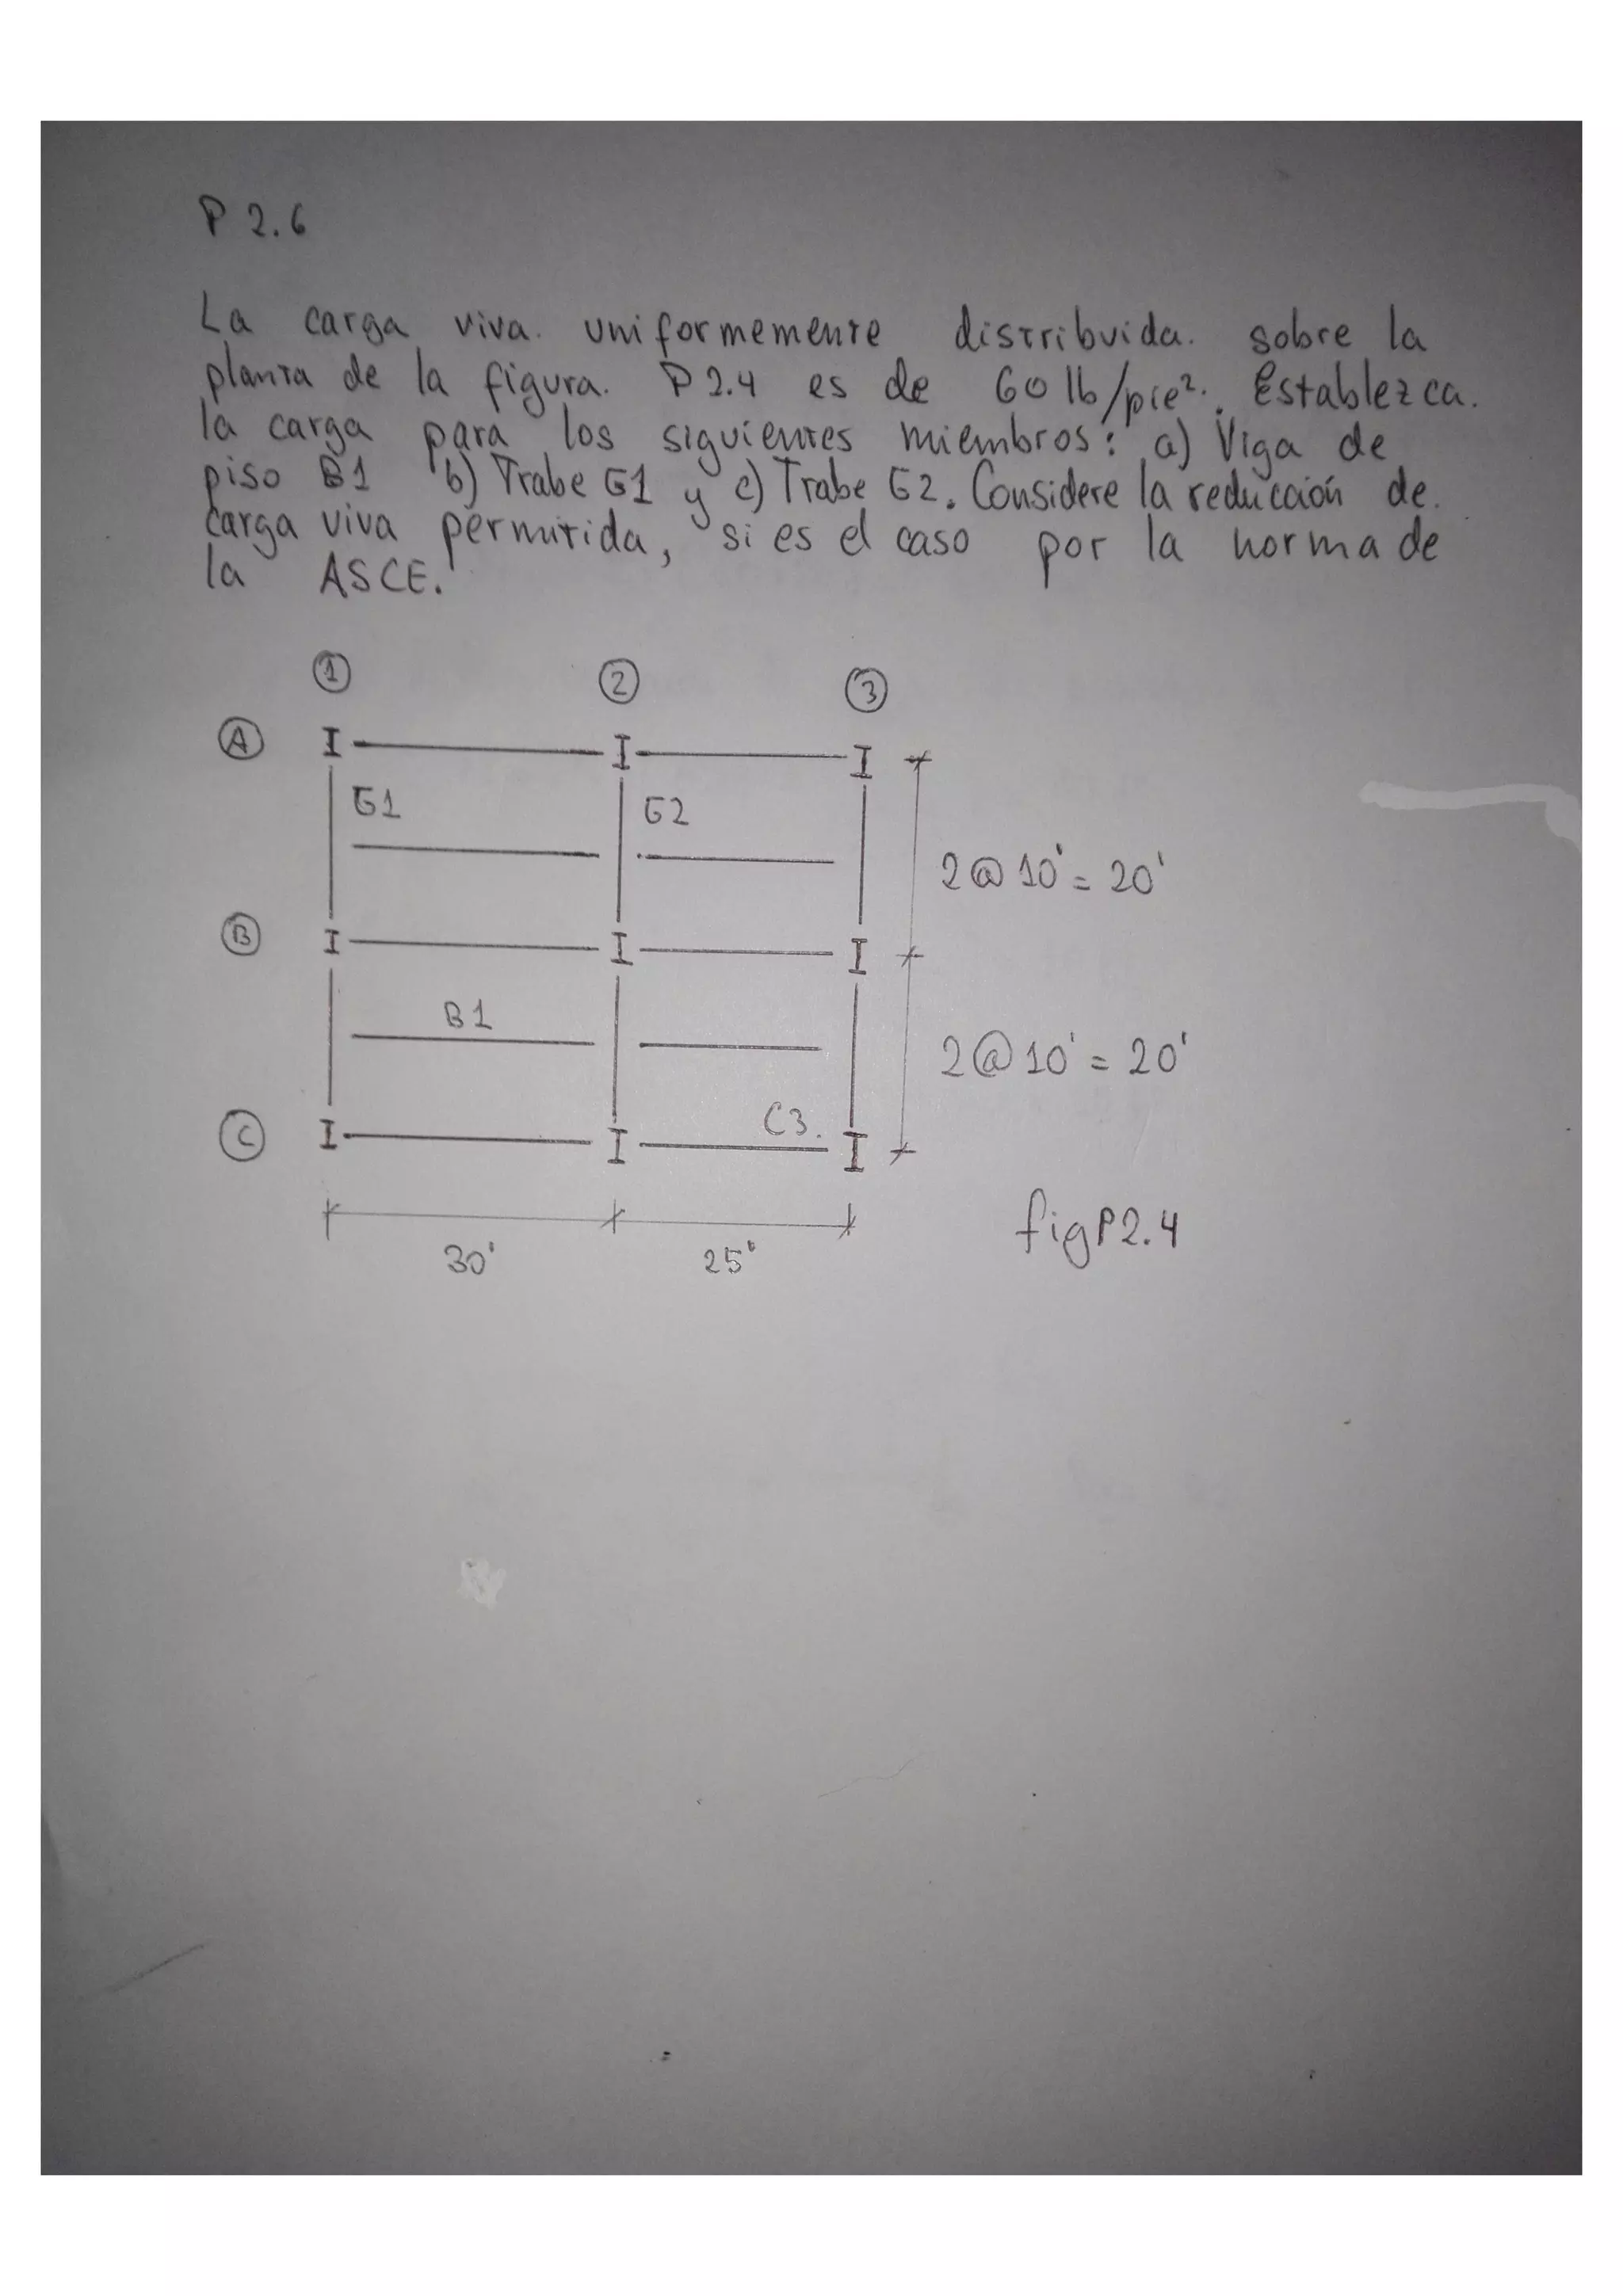 P 2.6
La carga viva. uniformemente distribuida. sobre la
planta de la figura. P 2.4 es de 60 lb/pie². Establezca.
la carga para los siguientes miembros: a) Viga de
piso B1 b) Trabe G1 y c) Trabe G2. Considere la reducción de.
carga viva permitida, si es el caso por la norma de
la ASCE.
1 2 3
A
G1 G2
2@10'=20'
B
B1
2@10'=20'
C3.
C
30' 25'
fig P2.4